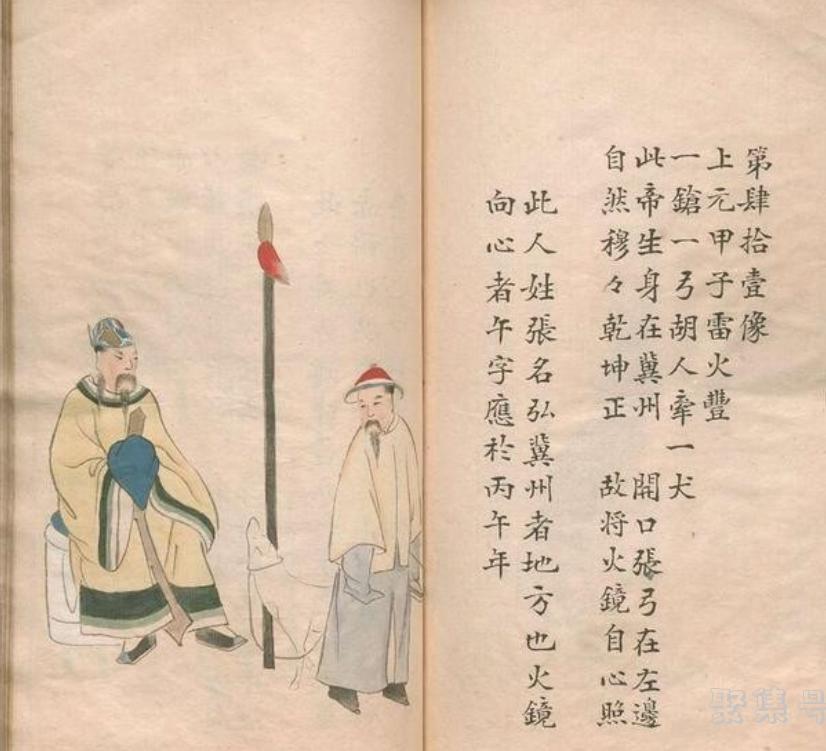 第肆拾壹像
上元甲子雷火豐
一鎗一弓胡人牽一犬
此帝生身在冀州　開口張弓在左邊
自然穆々乾坤正　故将火鏡自心照
此人姓張名弘冀州者地方也火鏡
向心者午字應於丙午年
聚集号